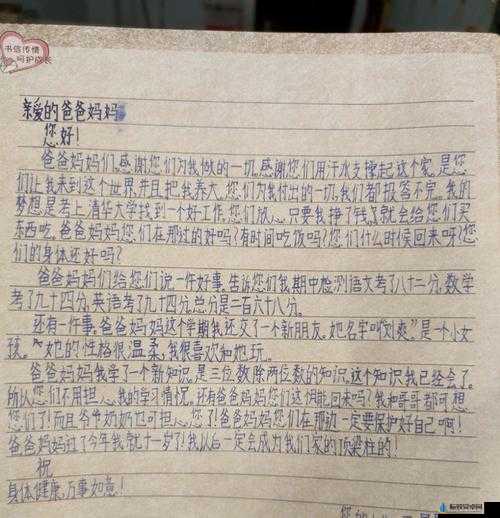 书信传情
呵护成长
亲爱的爸爸妈妈
您好！
爸爸妈妈们，感谢您们为我做的一切，感谢您们用汗水支撑起这个家，是您
们让我来到这个世界，并且把我养大，您们为我付出的一切，我们都报答不完。我的
梦想是考上清华大学找到一个好工作，您们放心，只要我挣了钱，就会给您们买
东西吃。爸爸妈妈您们在那过的好吗？有时间吃饭吗？您们什么时候回来呀？您
们的身体还好吗？
爸爸妈妈们给您们说一件好事，告诉您们我期中检测语文考了八十二分，数学
考了九十四分，英语考了九十四分，总分是一百六十八分。
还有一件事，爸爸妈妈这个学期我还交了一个新朋友，她名字叫“刘爽”是一个小女
孩。她的性格很温柔，我很喜欢和她玩。
爸爸妈妈我学了一个新知识，是三位数除两位数的知识，这个知识我已经会了，
所以您们不用担心我的学习情况，还有爸爸妈妈您们这次能回来吗？我和哥哥都可想
您们了！而且爷爷奶奶也可担心您了！爸爸妈妈您们在那边一定要保护好自己啊！
爸爸妈妈过了今年我就十一岁了！我以后一定会成为我们家的顶梁柱的！
祝
身体健康，万事如意！